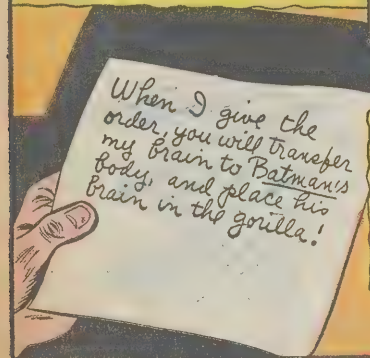 When I give the
order, you will transfer
my brain to Batman's
body, and place his
brain in the gorilla!